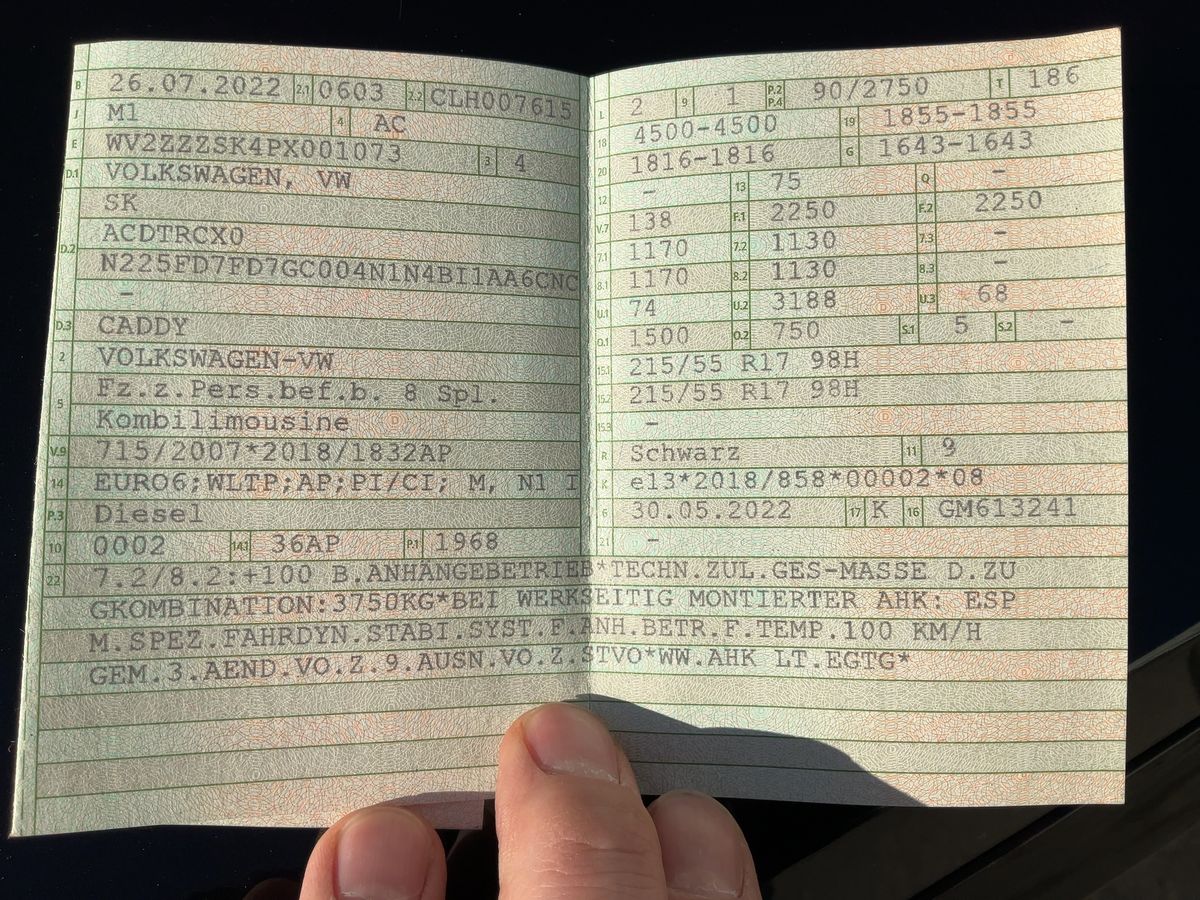 B 26.07.2022 2.1 0603 2.2 CLH007615
J M1 4 AC
E WV2ZZZSK4PX001073 3 4
D.1 VOLKSWAGEN, VW
SK
D.2 ACDTRCX0
N225FD7FD7GC004N1N4BI1AA6CNC
-
D.3 CADDY
2 VOLKSWAGEN-VW
5 Fz.z.Pers.bef.b. 8 Spl.
Kombilimousine
V.9 715/2007*2018/1832AP
14 EURO6;WLTP;AP;PI/CI; M, N1 I
P.3 Diesel
10 0002 14.1 36AP P.1 1968
L 2 9 1 P.2 P.4 90/2750 T 186
18 4500-4500 19 1855-1855
20 1816-1816 G 1643-1643
12 - 13 75 Q -
V.7 138 F.1 2250 F.2 2250
7.1 1170 7.2 1130 7.3 -
8.1 1170 8.2 1130 8.3 -
U.1 74 U.2 3188 U.3 68
O.1 1500 O.2 750 S.1 5 S.2 -
15.1 215/55 R17 98H
15.2 215/55 R17 98H
15.3 -
R Schwarz 11 9
K e13*2018/858*00002*08
6 30.05.2022 17 K 16 GM613241
21 -
22 7.2/8.2:+100 B.ANHÄNGEBETRIEB*TECHN.ZUL.GES-MASSE D.ZU
GKOMBINATION:3750KG*BEI WERKSEITIG MONTIERTER AHK: ESP
M.SPEZ.FAHRDYN.STABI.SYST.F.ANH.BETR.F.TEMP.100 KM/H
GEM.3.AEND.VO.Z.9.AUSN.VO.Z.STVO*WW.AHK LT.EGTG*